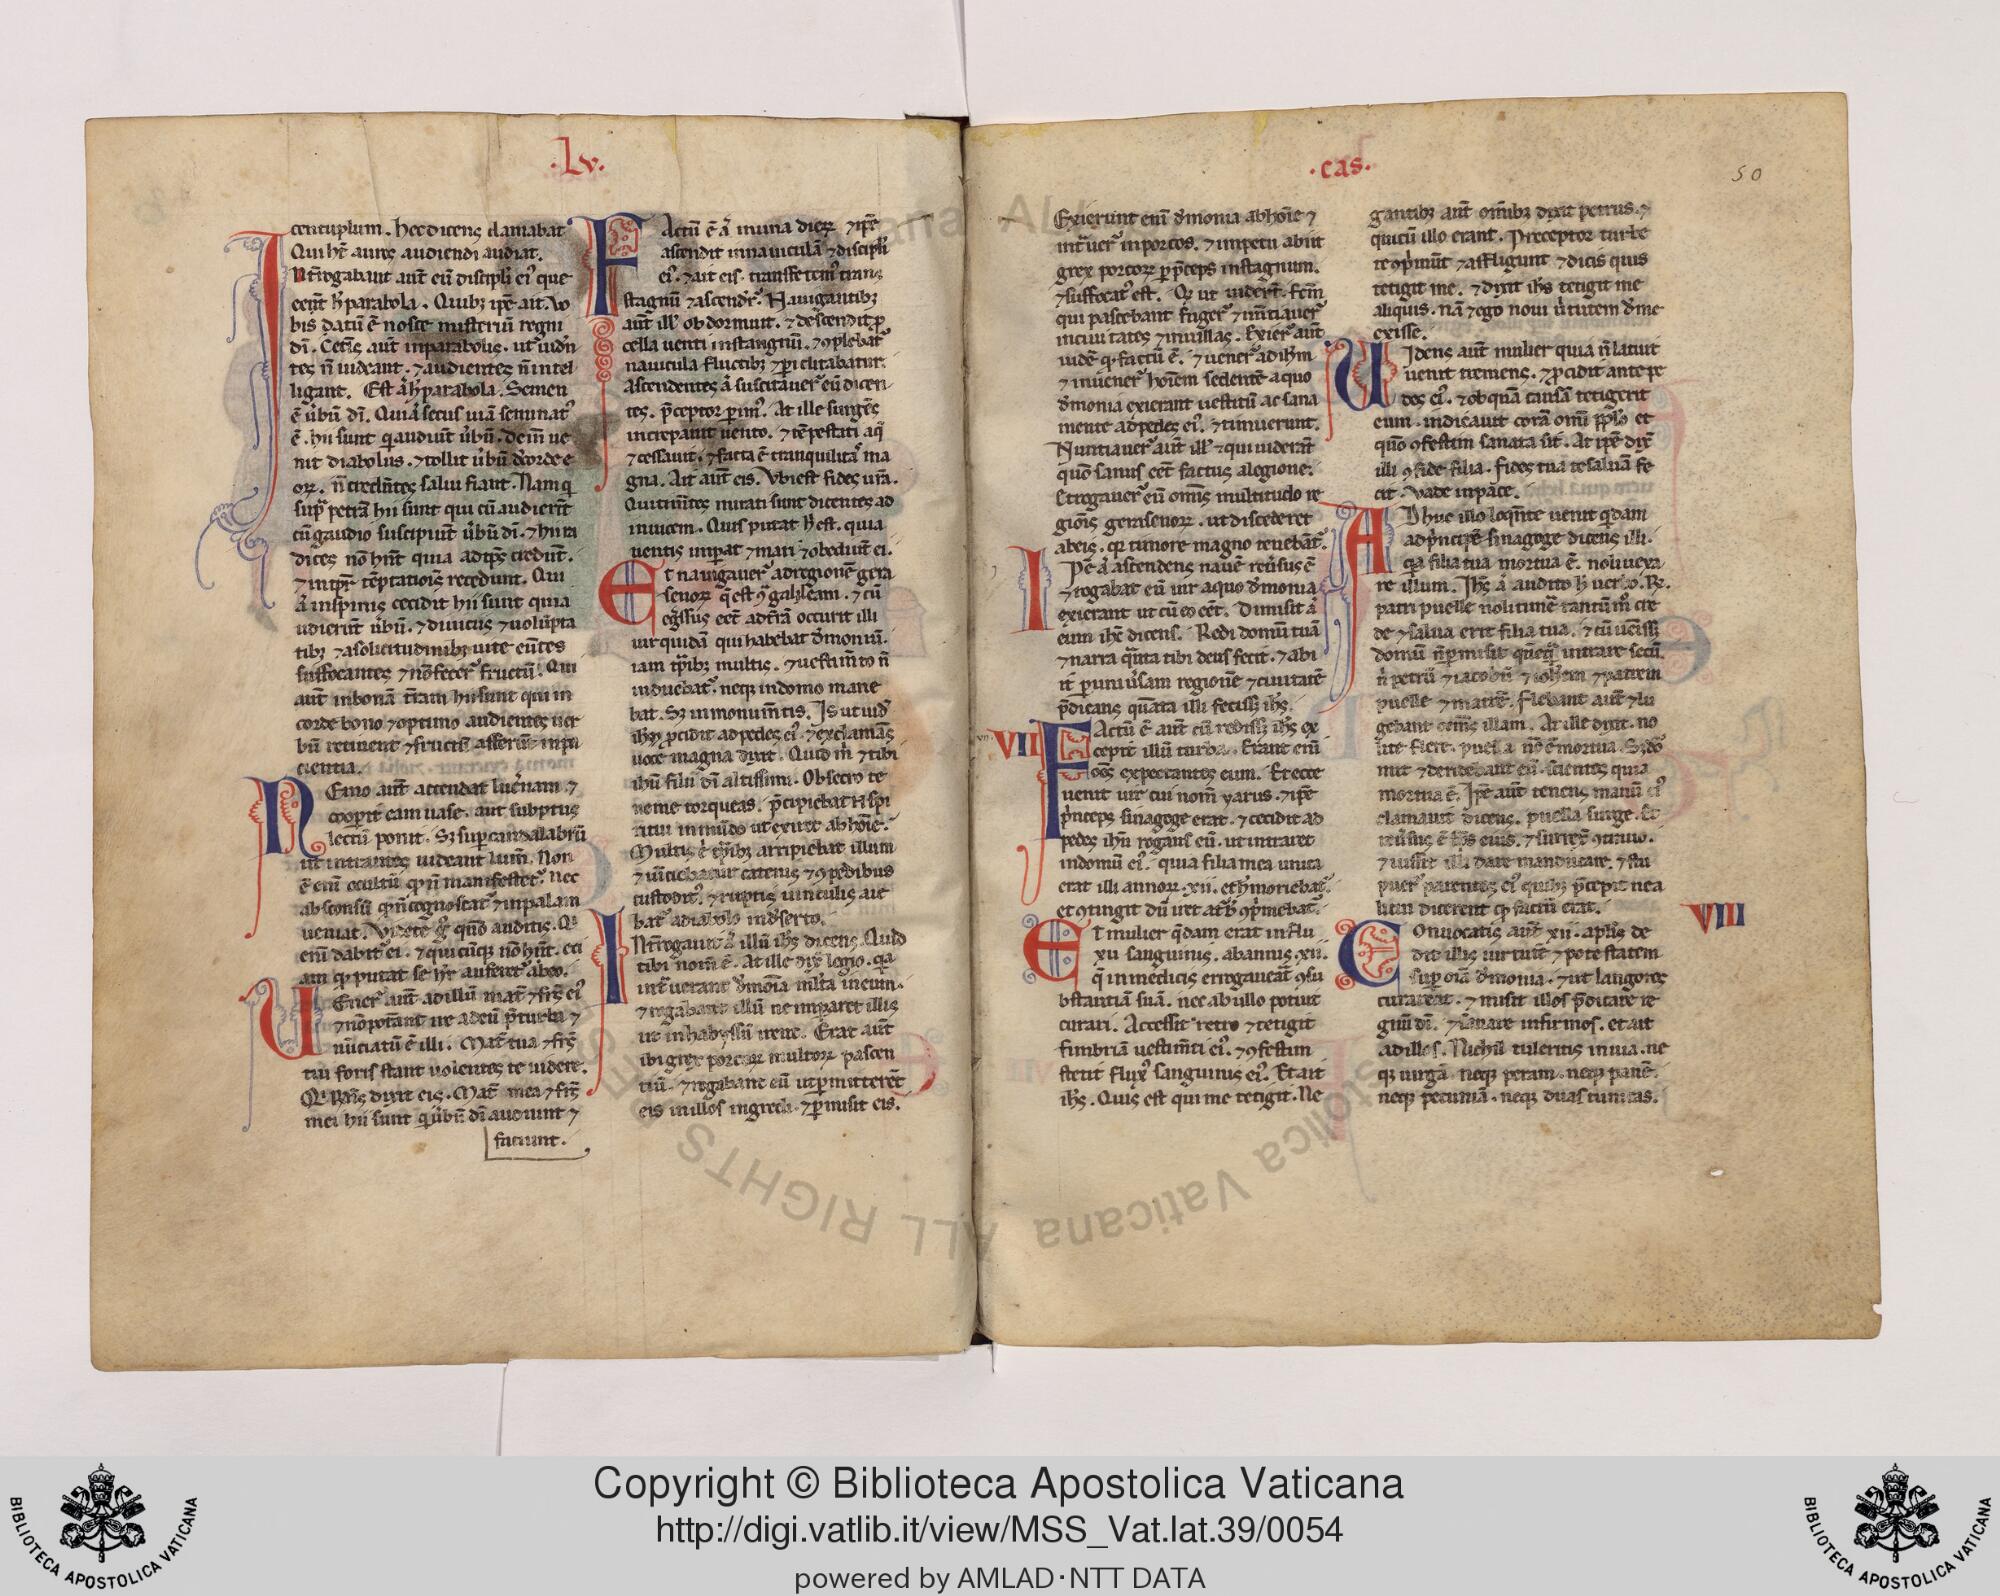 ·Lv·
centuplum. hec dicens clamabat
Qui hẽt aures audiendi audiat.
Nt̃rogabant aut̃ eũ discipli eiꝰ que
eẽt h̾ parabola. Quibꝫ ip̃e ait. Vo
bis datũ ẽ nosce misteriũ regni
dĩ. Cet̃is aut̃ inparabolis. ut uidẽ
tes ñ uideant. ⁊ audientes ñ intel
ligant. Est aͥ h̾ parabola. Semen
ẽ ũbũ dĩ. Qui aͥ secus uiã seminatᷣ
ẽ. hii sunt q̇ audiũt ũbũ. dein̄ ue
nit diabolus. ⁊ tollit ũbũ d̾ corde e
oꝝ. ñ credẽtes salui fiant. Nam q̇
supͣ petrã hii sunt qui cũ audierĩt
cũ gaudio suscipiũt ũbũ dĩ. ⁊ hii ra
dices nõ hñt quia ad tp̃s credũt.
⁊ in tpr̃ tẽptatiõis recedunt. Qui
aͥ in spinis cecidit hii sunt quia
udierũt ũbũ. ⁊ diuiciis ⁊ uolũpta
tibꝫ ⁊ asolicitudinibꝫ uite eũtes
suffocantes ⁊ nõ feceꝝ fructũ. Qui
aut̃ inbonã t̃ram hii sunt qui in
corde bono ⁊ optimo audientes uer
bũ retinent ⁊ fructũ afferũt inpa
cientia.
NEmo aut̃ accendat lucͥnam ⁊
coopit eam uase. aut subptus
lectũ ponit. Sꝫ sup candalabrũ
ut intrantes uideant lum̃. Non
ẽ enĩ occultũ qp ñ manifestetᷣ. nec
absconsũ qp ñ cognoscatᷣ ⁊ inpalam
ueniat. Videte gͦ quõ auditis. Qͥ
enĩ dabitᷣ ei. ⁊ quicũqꝫ nõ hñt. eti
am qp putat se hr̃e auferetᷣ abeo.
UEnerᷣ aut̃ ad illũ mat̃ ⁊ fr̃s eiꝰ
⁊ nõ potant ire adeũ p̃ turba ⁊
nũciatũ ẽ illi. Mat̃ tua ⁊ fr̃s
tui foris stant uolentes te uidere.
Qͥ rñs dixit eis. Mat̃ mea ⁊ fr̃s
mei hii sunt qͥ ũbũ dĩ audiunt ⁊
faciunt.
FActũ ẽ aͥ inuna dieꝝ ⁊ ip̃e
ascendit innauiculã ⁊ discipli
eiꝰ. ⁊ ait eis. transfretemꝰ trans
stagnũ ⁊ ascenderᷣ. Nauigantibꝫ
aut̃ illꝭ obdormiuit. ⁊ descendit p
cella uenti instangnũ. ⁊ ꝯplebatᷣ
nauicula fluctibꝫ ⁊ piclitabatur.
Ascendentes aͥ suscitaũerᷣ eũ dicen
tes. p̃ceptor pimꝰ. At ille surgẽs
increpauit uento. ⁊ tẽpestati aq̃
⁊ cessauit. ⁊ facta ẽ tranquilitas ma
gna. Ait aut̃ eis. Vbi est fides ur̃a.
Qui tim̃tes mirati sunt dicentes ad
inuicem. Quis putat h̾ est. quia
uentis impat ⁊ mari ⁊ obediũt ei.
Et nauigauerᷣ ad regionẽ gera
senoꝝ q̃ est ꝯͣ galileam. ⁊ cũ
eg̃ssus eẽt ad t̃rã occurit illi
uir quidã qui habebat d̃monium.
iam tp̃ibꝫ multis. ⁊ uestim̃to ñ
induebatᷣ. neqꝫ indomo mane
bat. Sꝫ in monum̃tis. Is ut uidꝰ
ihm̃ pcidit ad pedes eiꝰ ⁊ exclamãs
uoce magna dixit. Quid m̃ ⁊ tibi
ihũ fili dĩ altissimi. Obsecro te
ne me torqueas. p̃cipiebat .n. spi
ritui inmũdo ut exiret ab hoĩe.
Multis ẽ tp̃ibꝫ arripiebat illum
⁊ uĩciebatur catenis ⁊ ꝯpedibus
custoditꝰ. ⁊ ruptis uinculis age
batᷣ adiabolo indeserto.
INt̃rogauit aͥ illũ ihs̃ dicens. Quid
tibi nom̃ ẽ. At ille dix̃ legio. q̃a
int̃uerant d̃moĩa ml̃ta ineum.
⁊ rogabant illũ ne imparet illis
ut inhabyssũ irent. Erat aut̃
ibi grex porcoꝝ multoꝝ pascen
tiũ. ⁊ rogabant eũ ut pmitterẽt
eis inillos ingredi. ⁊ pmisit eis.
·cas·
50
Exierunt enĩ d̃monia ab hoĩe ⁊
int̃uerᷣ inporcos. ⁊ impetu abiit
grex porcoꝝ p p̃ceps instagnum.
⁊ suffocatᷣ est. Qꝫ ut uiderĩt. fcm̃
qui pascebant fugerᷣ ⁊ nũtiauerᷣ
inciuitates ⁊ inuillas. Exierᷣ aut̃
uidẽ q. factũ ẽ. ⁊ uenerᷣ ad ihm̃
⁊ inuenerᷣ hoĩem sedentẽ a quo
d̃monia exierant uestitũ ac sana
mente ad pedes eiꝰ. ⁊ timuerunt.
Nuntiauerᷣ aut̃ illꝭ ⁊ qui uiderãt
quõ sanus eẽt factus alegione.
Et rogauerᷣ eũ om̃is multitudo re
gionis gerasenoꝝ. ut discederet
abeis. qꝫ timore magno tenebãtᷣ.
IPẽ aͥ ascendens nauẽ reũsus ẽ
⁊ rogabat eũ uir a quo d̃monia
exierant ut cũ eo eẽt. Dimisit aͥ
eum ihc̃ dicens. Redi domũ tuã
⁊ narra q̃nta tibi deus fecit. ⁊ abi
it p uniũsam regionẽ ⁊ ciuitatẽ
p̃dicans quãta illi fecisset ihs̃.
VII
FActũ ẽ aut̃ cũ redisset ihs̃ ex
cepit illũ turba. Erant enĩ
om̃s expectantes eum. Et ecce
uenit uir cui nom̃ yarus. ⁊ ip̃e
p̃nceps sinagoge erat. ⁊ cecidit ad
pedes ihũ rogans eũ. ut intraret
indomũ eiꝰ. quia filia mea unica
erat illi annoꝝ .xii. et h̾ moriebatᷣ.
et ꝯtingit dũ iret a turb̾ ꝯprimebatᷣ.
Et mulier q̃dam erat influ
xu sanguinis. abannis .xii.
q̃ inmedicis errogauerat ꝯsu
bstantiã suã. nec ab ullo potuit
curari. Accessit retro ⁊ tetigit
fimbriã uestim̃ti eiꝰ. ⁊ ꝯfestim
stetit fluxꝰ sanguinis eiꝰ. Et ait
ihs̃. Quis est qui me tetigit. Ne
gantibꝫ aut̃ om̃ibꝫ dixit petrus. ⁊
qui cũ illo erant. Preceptor turbe
te ꝯprimũt ⁊ affligunt ⁊ dicis quis
tetigit me. ⁊ dixit ihs̃ tetigit me
aliquis. nã ⁊ ego noui ũtutem d̾ me
exisse.
UIdens aut̃ mulier quia ñ latuit
uenit tremens. ⁊ pcidit ante pe
des eiꝰ. ⁊ ob quãm causã tetigerit
eum. indicauit corã om̃i pp̃lo et
quõ ꝯfestim sanata sit. At ip̃e dix̃
illi ꝯfide filia. fides tua te saluã fe
cit. Vade inpace.
ADhuc illo loq̃nte uenit q̇dam
ad p̃ncipẽ sinagoge dicens illi.
q̃a filia tua mortua ẽ. noli uexa
re illum. Ihs̃ aͥ audito h̾ uerbo. R̃.
patri puelle noli timẽ tantũ mͦ cre
de ⁊ salua erit filia tua. ⁊ cũ uẽisset
domũ ñ pmisit quẽqͣ intrare secũ.
nͥ petrũ ⁊ iacobũ ⁊ ioh̃em ⁊ patrem
puelle ⁊ matrẽ. Flebant aut̃ ⁊ lu
gebant om̃s illam. At ille dixit. no
lite flere. puella nõ ẽ mortua. Sꝫ dor
mit ⁊ deridebant eũ. scientes quia
mortua ẽ. Ip̃e aut̃ tenens manũ eiꝰ
clamauit dicens. puella surge. Et
reũsus ẽ sp̃s eius. ⁊ surrex̃ ꝯtinuo.
⁊ iussit illi dare manducare. ⁊ stu
puerᷣ parentes eiꝰ quibꝫ p̃cepit ne a
licui dicerent qp factũ erat.
VIII
COnuocatis aut̃ xii. apl̃is de
dit illis uirtutẽ ⁊ potestatem
sup oĩa d̃monia. ⁊ ut langores
curarent. ⁊ misit illos p̃dicare re
gnũ dĩ. ⁊ sanare infirmos. et ait
ad illos. Nichil tuleritis inuia. ne
qꝫ uirgã. neqꝫ peram. neqꝫ panẽ.
neqꝫ pecuniã. neqꝫ duas tunicas.
Copyright © Biblioteca Apostolica Vaticana
http://digi.vatlib.it/view/MSS_Vat.lat.39/0054
powered by AMLAD·NTT DATA
BIBLIOTECA APOSTOLICA VATICANA
BIBLIOTECA APOSTOLICA VATICANA